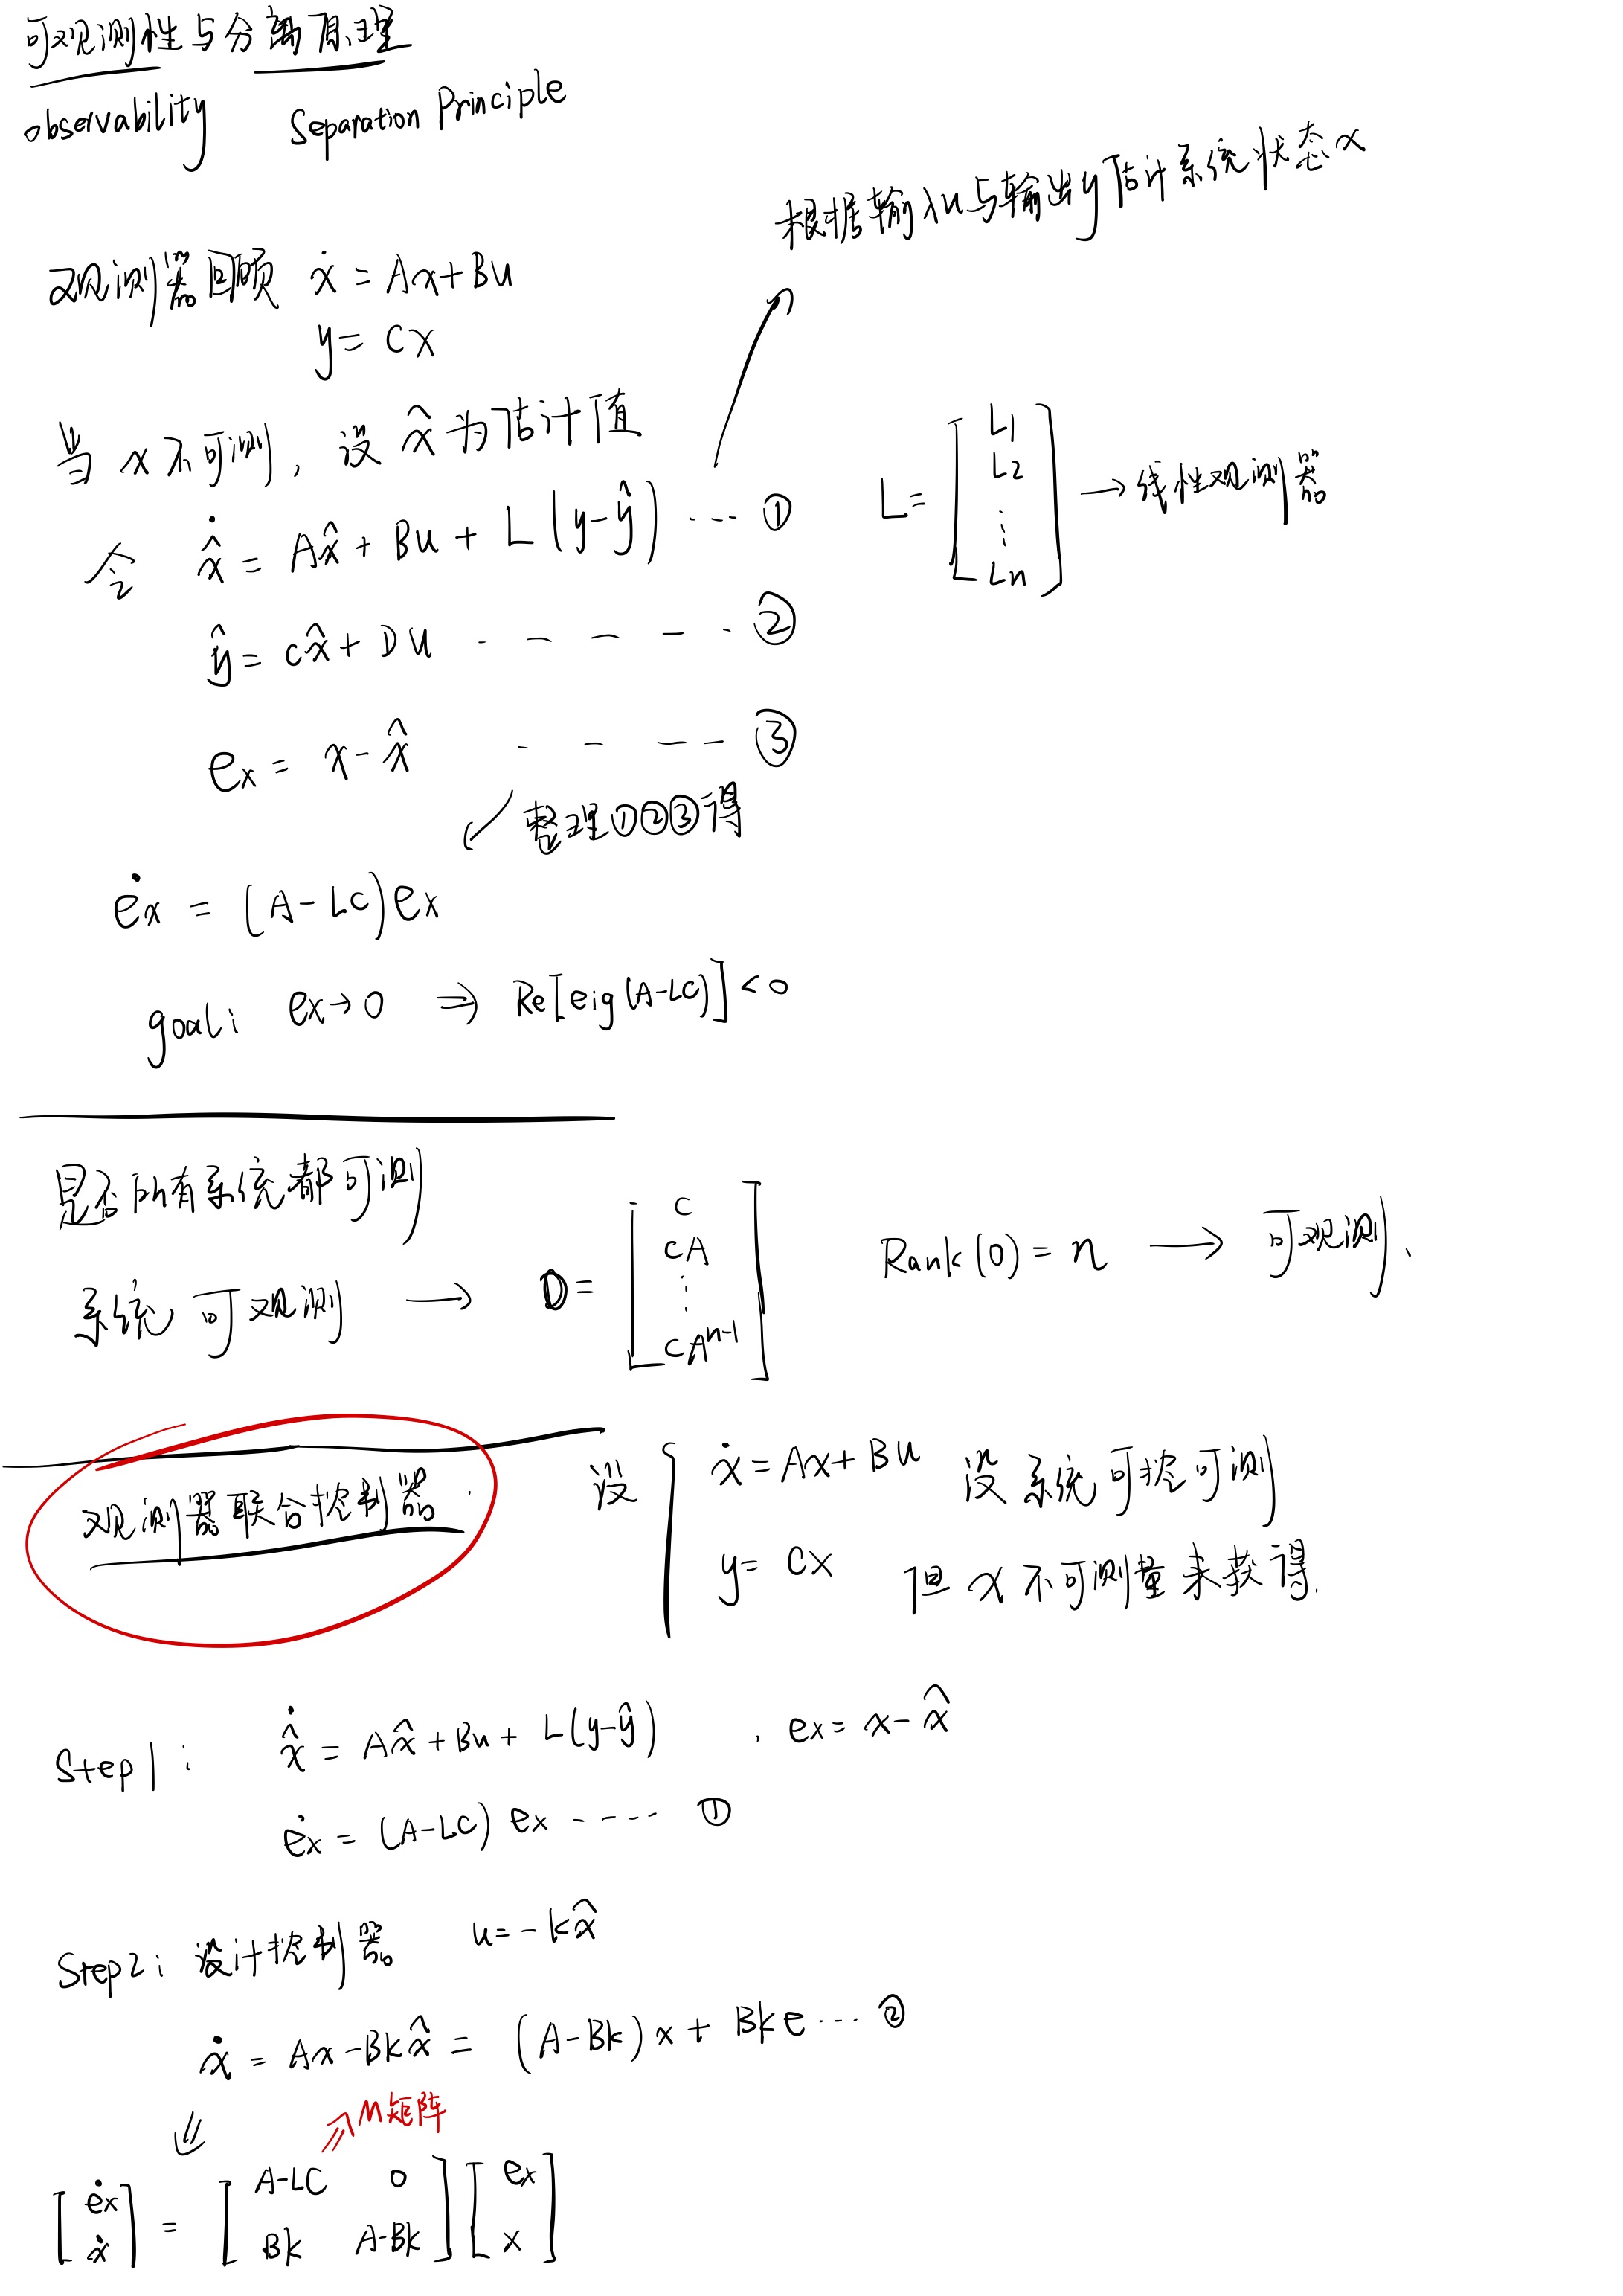 可观测性与分离原理
observability Separation Principle
根据输入u与输出y估计系统状态x
观测器回顾 ẋ = Ax+Bu
y = Cx
当 x 不可测, 设 x̂ 为估计值
令 x̂̇ = Ax̂ + Bu + L(y-ŷ) ... ①
L = [L1 L2 ⋮ Ln] → 线性观测器
ŷ = Cx̂ + Du ----- ②
ex = x - x̂ ---- ③
↙ 整理①②③得
ėx = (A-LC)ex
goal: ex→0 ⇒ Re[eig(A-LC)]<0
是否所有系统都可测
系统可观测 → O = [C CA ⋮ CAⁿ⁻¹] Rank(O) = n → 可观测.
观测器联合控制器. 设 { ẋ = Ax+Bu 设系统可控可测
y = Cx 但 x 不可测量来获得.
Step1: x̂̇ = Ax̂ + Bu + L(y-ŷ) , ex = x - x̂
ėx = (A-LC) ex ---- ①
Step2: 设计控制器 u = -kx̂
ẋ = Ax - Bkx̂ = (A-Bk)x + Bke ... ②
⇙ ⇗ M矩阵
[ėx ẋ] = [A-LC 0 Bk A-Bk] [ex x]